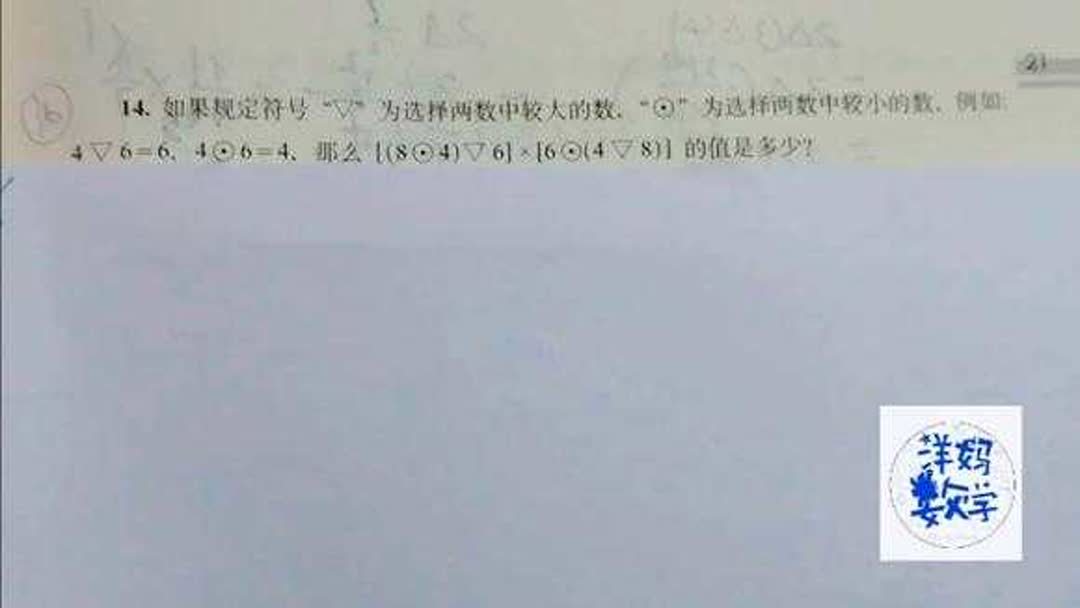 21
14. 如果规定符号“▽”为选择两数中较大的数，“⊙”为选择两数中较小的数，例如:
4▽6=6，4⊙6=4，那么 [(8⊙4)▽6]×[6⊙(4▽8)] 的值是多少?
洋妈
数学